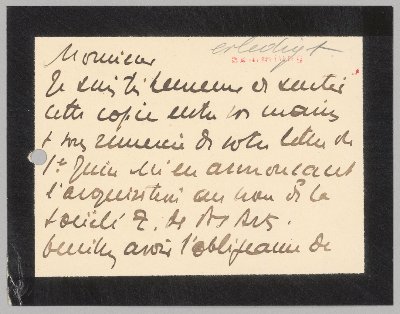 Monsieur
erledigt
Je suis très heureux de sentir
cette copie entre vos mains
& vous remercie de votre lettre du
1er Juin m'en annonçant
l'acquisition au nom de la
société des Arts.
Veuillez avoir l'obligeance de